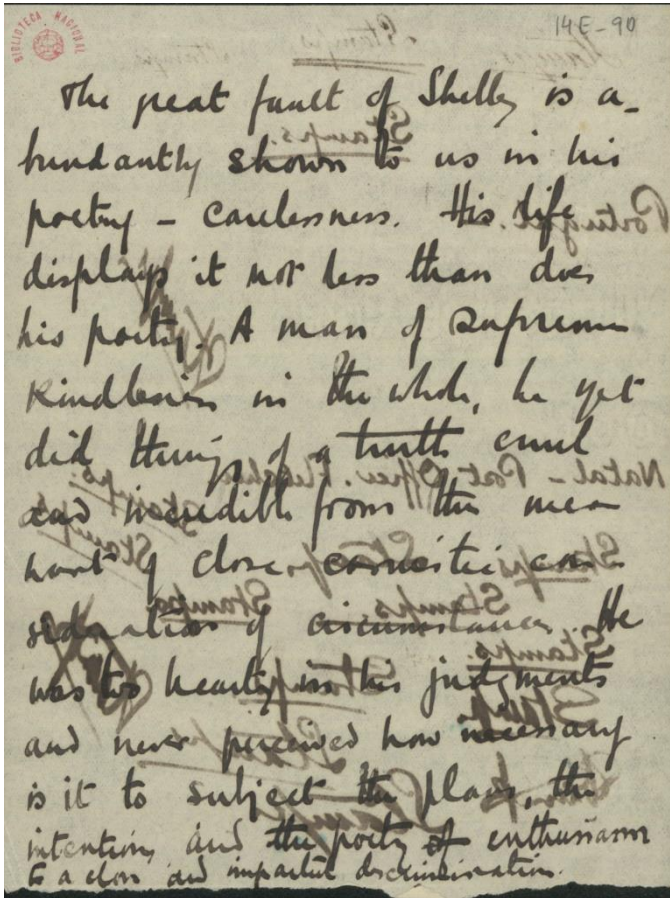 BIBLIOTECA NACIONAL
14E-90
The great fault of Shelley is a-
bundantly shown to us in his
poetry – carelessness. His life
displays it not less than does
his poetry. A man of supreme
Kindliness in the whole, he yet
did things of a truth cruel
and incredible from the mere
want of close con-
sideration of circumstance. He
was too in his judgments
and never perceived how necessary
is it to subject the plans, the
intentions and the poetry of enthusiasm
to a close and impartial discrimination.
Stamps.
Portugal.
Natal – Post Office.
Stamps
Stamps
Stamps
Stamps.